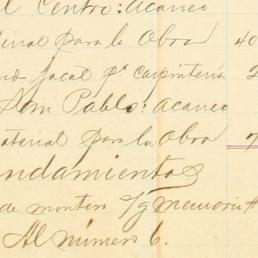 l Centro: Acarreo
erial para la Obra 40
jacal pª Carpintería 2
Don Pablo: Acarreo
aterial para la Obra 7
ndamientos
de montar s/g memoria #
Al número 6.